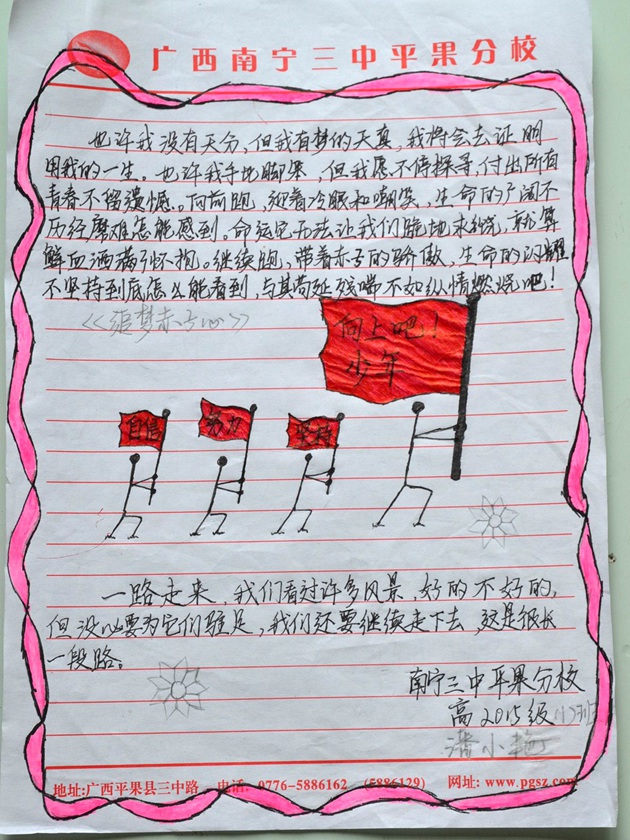 广西南宁三中平果分校
也许我没有天分，但我有梦的天真，我将会去证明
用我的一生。也许我手比脚笨，但我愿不停探寻，付出所有
青春不留遗憾。向前跑，迎着冷眼和嘲笑，生命的广阔不
历经磨难怎能感到。命运它无法让我们跪地求饶，就算
鲜血洒满了怀抱。继续跑，带着赤子的骄傲，生命的闪耀
不坚持到底怎么能看到，与其苟延残喘不如纵情燃烧吧！
<<追梦赤子心>>
向上吧！
少年
自信
努力
坚持
一路走来，我们看过许多风景，好的不好的，
但没必要为它们驻足，我们还要继续走下去，这是很长
一段路。
南宁三中平果分校
高2015级
潘小艳
地址:广西平果县三中路 电话: 0776-5886162 (5886129) 网址: www.pgsz.com